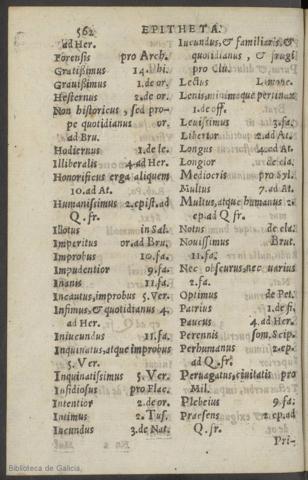 562
EPITHETA.
ad Her.
Forensis pro Arch.
Gratissimus 14. Phi.
Gratissimus 1. de or.
Hesternus 2. de or.
Non historicus, sed prope
quotidianus or.
ad Bru.
Hodiernus 1. de le.
Illiberalis 4. ad Her.
Honorificus erga aliquem
10. ad At.
Humanissimus 2. epist. ad
Q. fr.
Illotus in Sal.
Imperitus or. ad Bru.
Improbus 10. fa.
Impudentior 9. fa.
Inanis 11. fa.
Incautus, improbus 5. Ver.
Infimus, & quotidianus 4.
ad Her.
Iniucundus 11. fa.
Inquinatus, atque improbus
5. Ver.
Inquinatissimus 5. Ver.
Insidiosus pro Flac.
Intentior 2. de or.
Intimus 2. Tus.
Iucundus 3. de Nat.
Iucundus, & familiaris, &
quotidianus, & frugi
pro Clu.
Lectus
Lenis, minimeque pertinax
1. de off.
Leuissimus 3. fa.
Libertor 2. ad At.
Longus 4. ad At.
Longior de cla.
Mediocris pro Syl.
Multus 7. ad At.
Multus, atque humanus 2.
ep. ad Q. fr.
Notus de cla.
Nouissimus Brut.
11. fa.
Nec obscurus, nec uarius
2. fa.
Optimus de Pet.
Patrius 1. de fi.
Paucus 4. ad Her.
Perennis som. Scip.
Perhumanus 2. ep.
ad Q. fr.
Peruagatus, ciuitatis pro
Mil.
Plebeius 9. fa.
Praesens 2. ep. ad
Q. fr.
Pri-
Biblioteca de Galicia